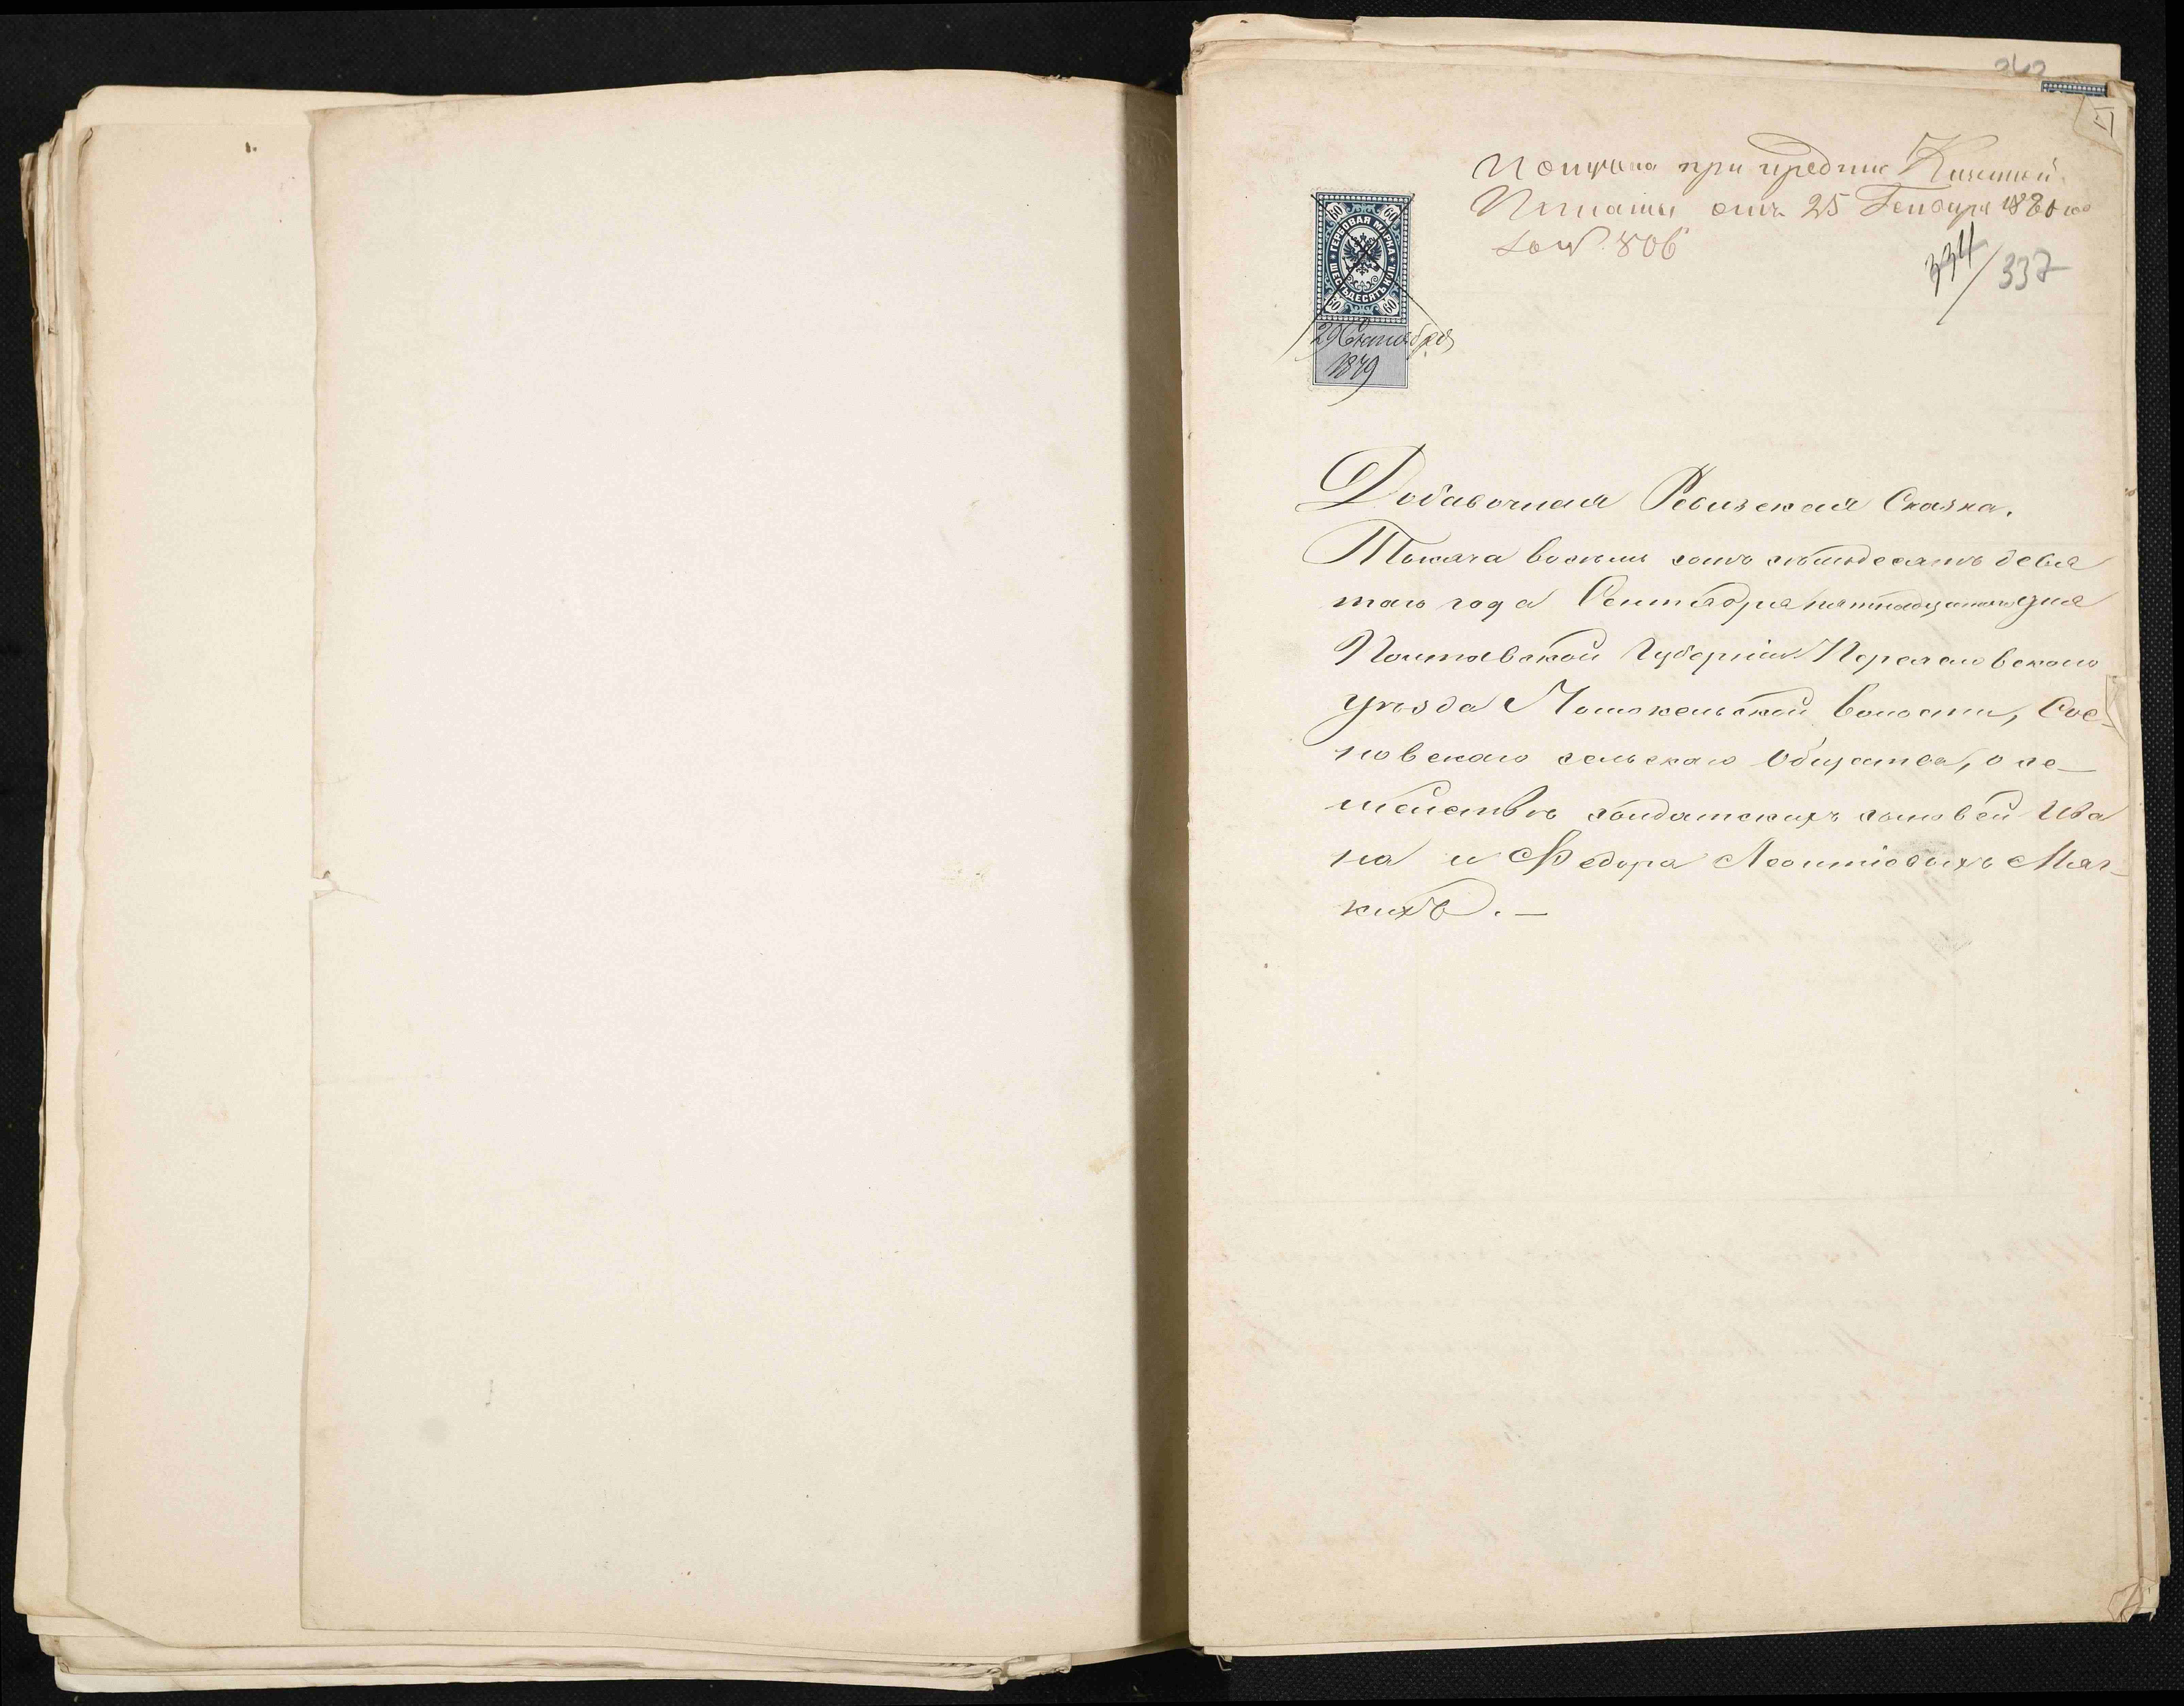 262
Получена при предпис. Казенной
Палаты отъ 25 Генваря 1880 го
за № 806
334/337
60 60
ГЕРБОВАЯ МАРКА
ШЕСТЬДЕСЯТЪ КОП.
60 60
29 Октября
1879
Добавочная Ревизская Сказка.
Тысяча восемь сотъ семьдесятъ девя
таго года Сентября пятнадцатаго дня
Полтавской Губерніи Переяславскаго
уѣзда Помоклельской волости, Сос-
новскаго сельскаго Общества, о се-
мействѣ солдатскихъ сыновей Ива
на и Федора Леонтіевыхъ Мяг-
кихъ. —